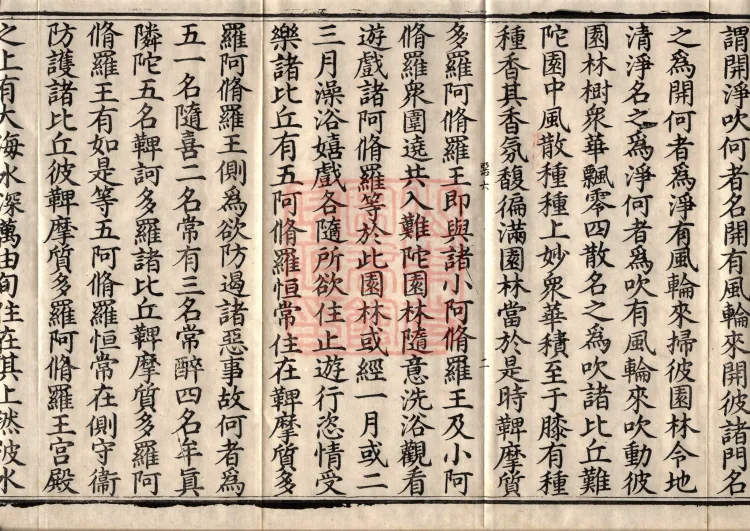 謂開淨吹何者名開有風輪來開彼諸門名
之爲開何者爲淨有風輪來掃彼園林令地
清淨名之爲淨何者爲吹有風輪來吹動彼
園林樹衆華飄零四散名之爲吹諸比丘難
陀園中風散種種上妙衆華積至于膝有種
種香其香氛馥徧滿園林當於是時鞞摩質
第六
二
多羅阿脩羅王即與諸小阿脩羅王及小阿
脩羅衆圍遶共入難陀園林隨意洗浴觀看
遊戲諸阿脩羅等於此園林或經一月或二
三月澡浴嬉戲各隨所欲住止遊行恣情受
樂諸比丘有五阿脩羅恒常住在鞞摩質多
羅阿脩羅王側爲欲防遏諸惡事故何者爲
五一名隨喜二名常有三名常醉四名牟眞
隣陀五名鞞訶多羅諸比丘鞞摩質多羅阿
脩羅王有如是等五阿脩羅恒常在側守衞
防護諸比丘彼鞞摩質多羅阿脩羅王宮殿
之上有大海水深萬由旬住在其上然彼水